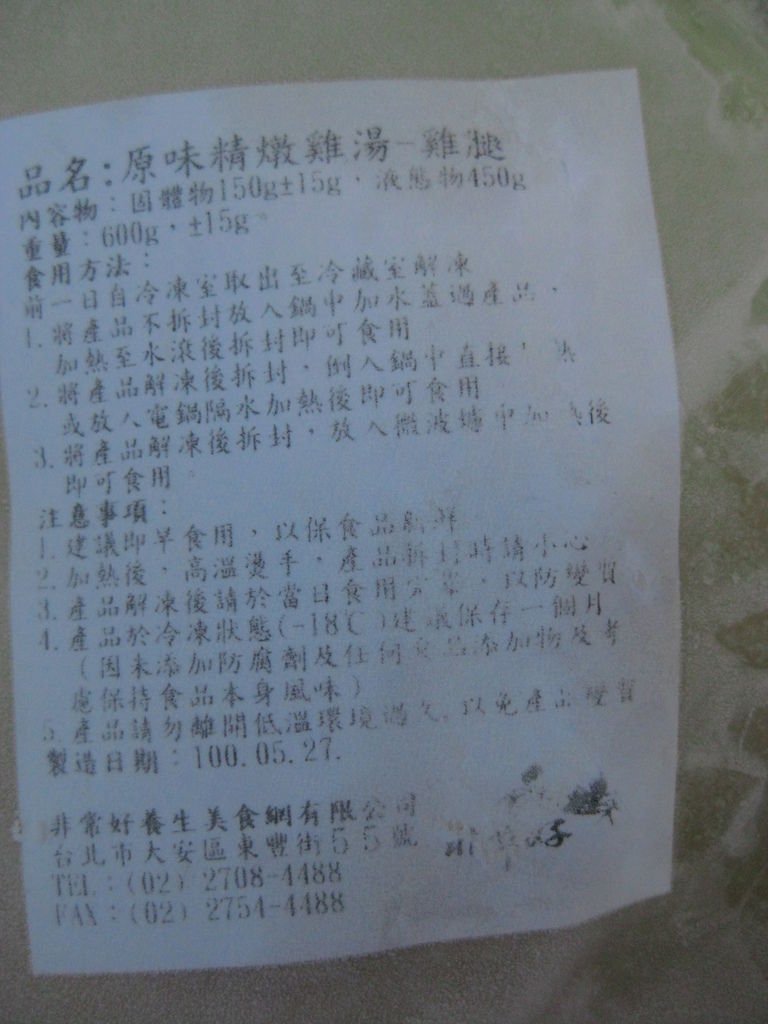 品名:原味精燉雞湯-雞腿
內容物:固體物150g±15g,液態物450g
重量:600g,±15g。
食用方法:
前一日自冷凍室取出至冷藏室解凍
1.將產品不拆封放入鍋中加水蓋過產品,
加熱至水滾後拆封即可食用
2.將產品解凍後拆封,倒入鍋中直接 熱
或放入電鍋隔水加熱後即可食用
3.將產品解凍後拆封,放入微波爐中加熱後
即可食用。
注意事項:
1.建議即早食用,以保食品新鮮
2.加熱後,高溫燙手,產品拆封時請小心
3.產品解凍後請於當日食用完畢,以防變質
4.產品於冷凍狀態(-18℃)建議保存一個月
(因未添加防腐劑及任何食品添加物及考
慮保持食品本身風味)
5.產品請勿離開低溫環境過久,以免產品變質
製造日期:100.05.27.
非常好養生美食網有限公司
台北市大安區東豐街55號
TEL:(02) 2708-4488
FAX:(02) 2754-4488
非常好